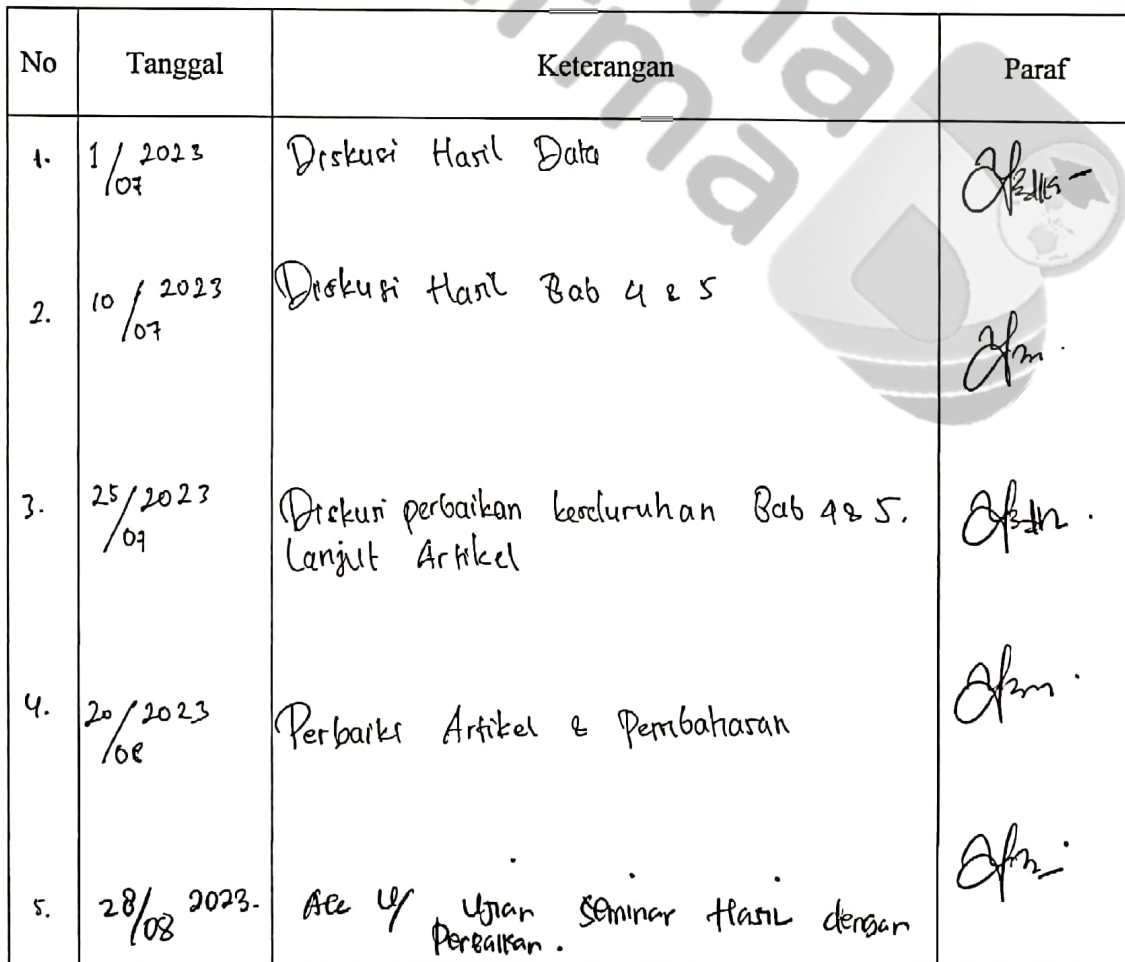 No Tanggal Keterangan Paraf
1. 1/07 2023 Diskusi Hasil Data
2. 10/07 2023 Diskusi Hasil Bab 4 & 5
3. 25/07 2023 Diskusi perbaikan keseluruhan Bab 4 & 5.
Lanjut Artikel
4. 20/08 2023 Perbaiki Artikel & Pembahasan
5. 28/08 2023. Acc u/ Ujian Seminar Hasil dengan
Perbaikan.